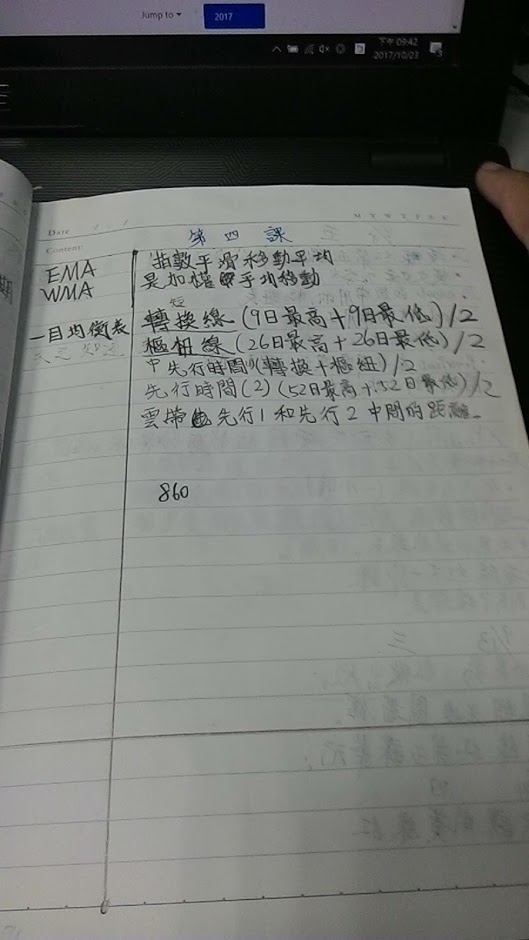 Jump to
2017
下午 09:42
2017/10/23
Date
Content:
M T W T F S S
第四課
EMA 指數平滑移動平均
WMA 是加權平均移動
短
一目均衡表 轉換線 (9日最高+9日最低)/2
樞紐線 (26日最高+26日最低)/2
中 先行時間1(轉換+樞紐)/2
先行時間(2) (52日最高+52日最低)/2
雲帶 先行1和先行2中間的距離
860